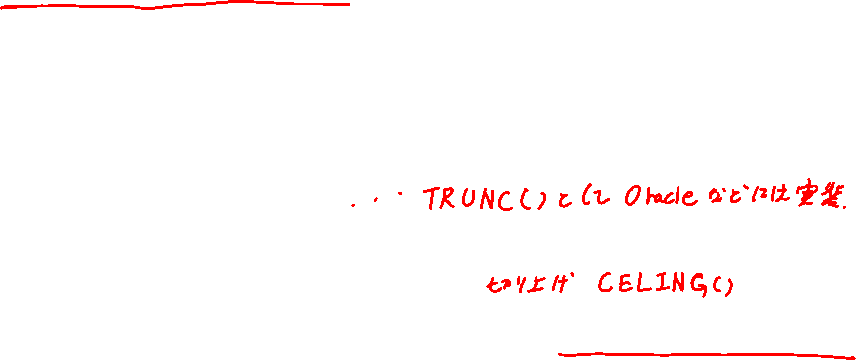 ... TRUNC()として Oracle などには実装.
切り上げ CELING()